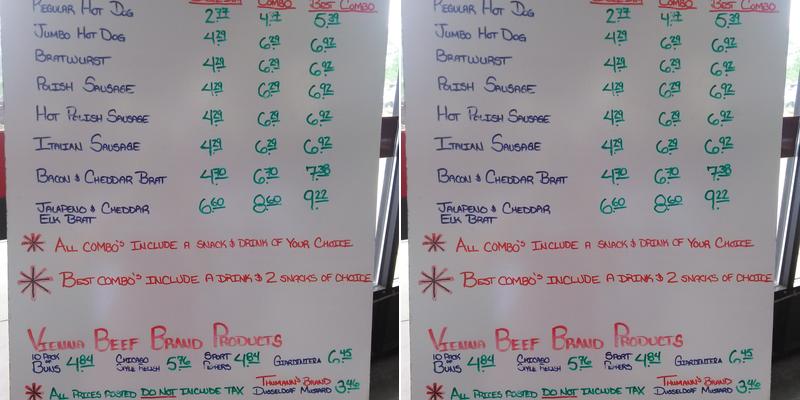 Combo Best Combo
Regular Hot Dog 2.77 5.39
Jumbo Hot Dog 4.29 6.29 6.92
Bratwurst 4.29 6.29 6.92
Polish Sausage 4.29 6.29 6.92
Hot Polish Sausage 4.29 6.29 6.92
Italian Sausage 4.29 6.29 6.92
Bacon & Cheddar Brat 4.70 6.70 7.38
Jalapeno & Cheddar Elk Brat 6.60 8.60 9.22
All Combo's Include a Snack & Drink of Your Choice
Best Combo's Include a Drink & 2 Snacks of Choice
Vienna Beef Brand Products
10 Pack Buns 4.84 Chicago Style Relish 5.76 Sport Peppers 4.84 Giardiniera 6.45
All Prices Posted Do Not Include Tax Thumann's Brand Dusseldorf Mustard 3.46
Combo Best Combo
Regular Hot Dog 2.77 5.39
Jumbo Hot Dog 4.29 6.29 6.92
Bratwurst 4.29 6.29 6.92
Polish Sausage 4.29 6.29 6.92
Hot Polish Sausage 4.29 6.29 6.92
Italian Sausage 4.29 6.29 6.92
Bacon & Cheddar Brat 4.70 6.70 7.38
Jalapeno & Cheddar Elk Brat 6.60 8.60 9.22
All Combo's Include a Snack & Drink of Your Choice
Best Combo's Include a Drink & 2 Snacks of Choice
Vienna Beef Brand Products
10 Pack Buns 4.84 Chicago Style Relish 5.76 Sport Peppers 4.84 Giardiniera 6.45
All Prices Posted Do Not Include Tax Thumann's Brand Dusseldorf Mustard 3.46